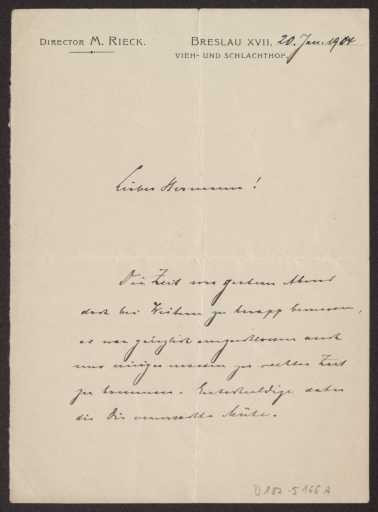 DIRECTOR M. RIECK.
BRESLAU XVII, 20. Jan. 1904
VIEH- UND SCHLACHTHOF.
Lieber Hermann!
Die Zeit war gestern Abend
doch bei Weitem zu knapp bemessen,
es war gänzlich ausgeschlossen auch
nur einigermassen zu rechter Zeit
zu kommen. Entschuldige daher
die Dir verursachte Mühe.
D 182-5166 A